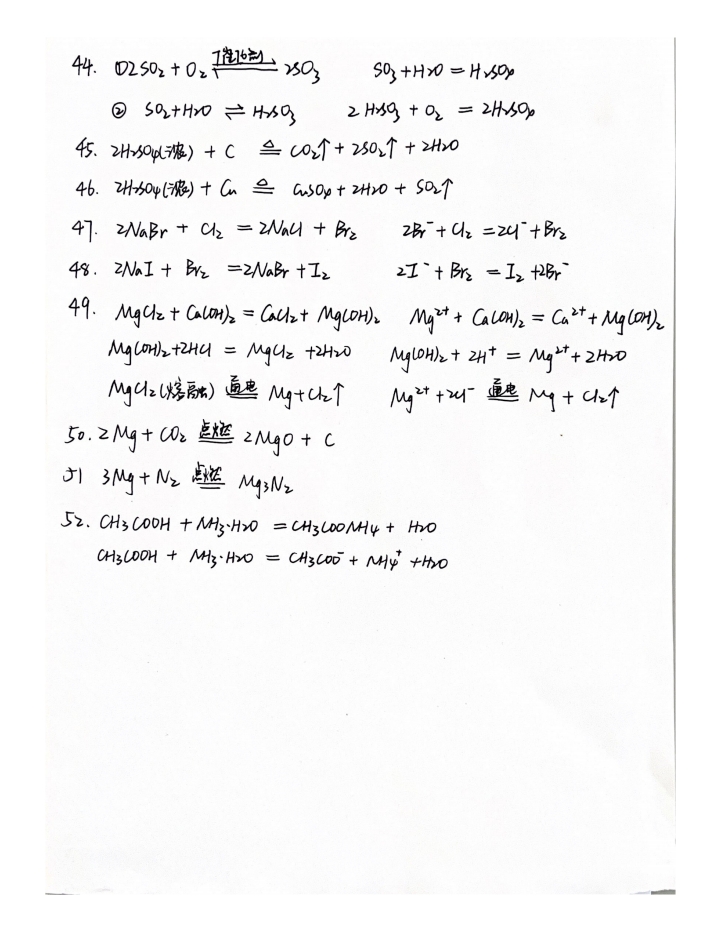 44. ①2SO₂ + O₂ ⇌(催化剂) 2SO₃ SO₃ + H₂O = H₂SO₄
② SO₂ + H₂O ⇌ H₂SO₃ 2H₂SO₃ + O₂ = 2H₂SO₄
45. 2H₂SO₄(浓) + C ≜ CO₂↑ + 2SO₂↑ + 2H₂O
46. 2H₂SO₄(浓) + Cu ≜ CuSO₄ + 2H₂O + SO₂↑
47. 2NaBr + Cl₂ = 2NaCl + Br₂ 2Br⁻ + Cl₂ = 2Cl⁻ + Br₂
48. 2NaI + Br₂ = 2NaBr + I₂ 2I⁻ + Br₂ = I₂ + 2Br⁻
49. MgCl₂ + Ca(OH)₂ = CaCl₂ + Mg(OH)₂ Mg²⁺ + Ca(OH)₂ = Ca²⁺ + Mg(OH)₂
Mg(OH)₂ + 2HCl = MgCl₂ + 2H₂O Mg(OH)₂ + 2H⁺ = Mg²⁺ + 2H₂O
MgCl₂(熔融) 通电═ Mg + Cl₂↑ Mg²⁺ + 2Cl⁻ 通电═ Mg + Cl₂↑
50. 2Mg + CO₂ 点燃═ 2MgO + C
51 3Mg + N₂ 点燃═ Mg₃N₂
52. CH₃COOH + NH₃·H₂O = CH₃COONH₄ + H₂O
CH₃COOH + NH₃·H₂O = CH₃COO⁻ + NH₄⁺ + H₂O